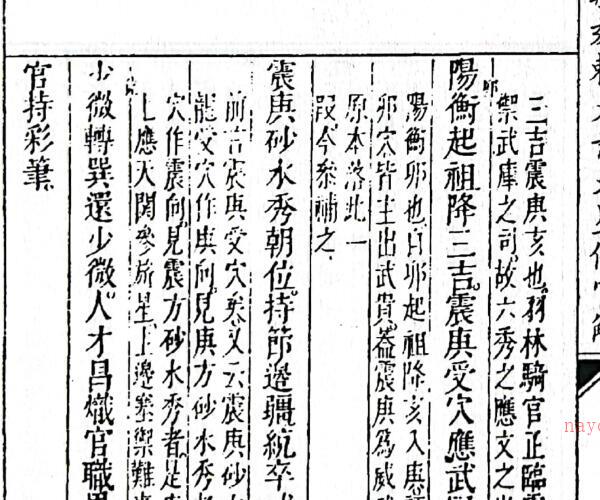 三吉震庚亥也羽林騎官正臨
禦武庫之司故六秀之應文之
陽衡起祖降三吉震庚受穴應武
陽衡卯也自卯起祖降亥入庚
卯穴皆主出武貴蓋震庚為威
原本落此一
段今叅補之
震庚砂水秀朝位持節邊疆統卒
前言震庚受穴矣又云震庚砂
龍受穴作庚向見庚方砂水秀
穴作震向見震方砂水秀者是
上應天関參旂星上邊
少微轉巽還少微人才昌熾官職
官持彩筆
nayo